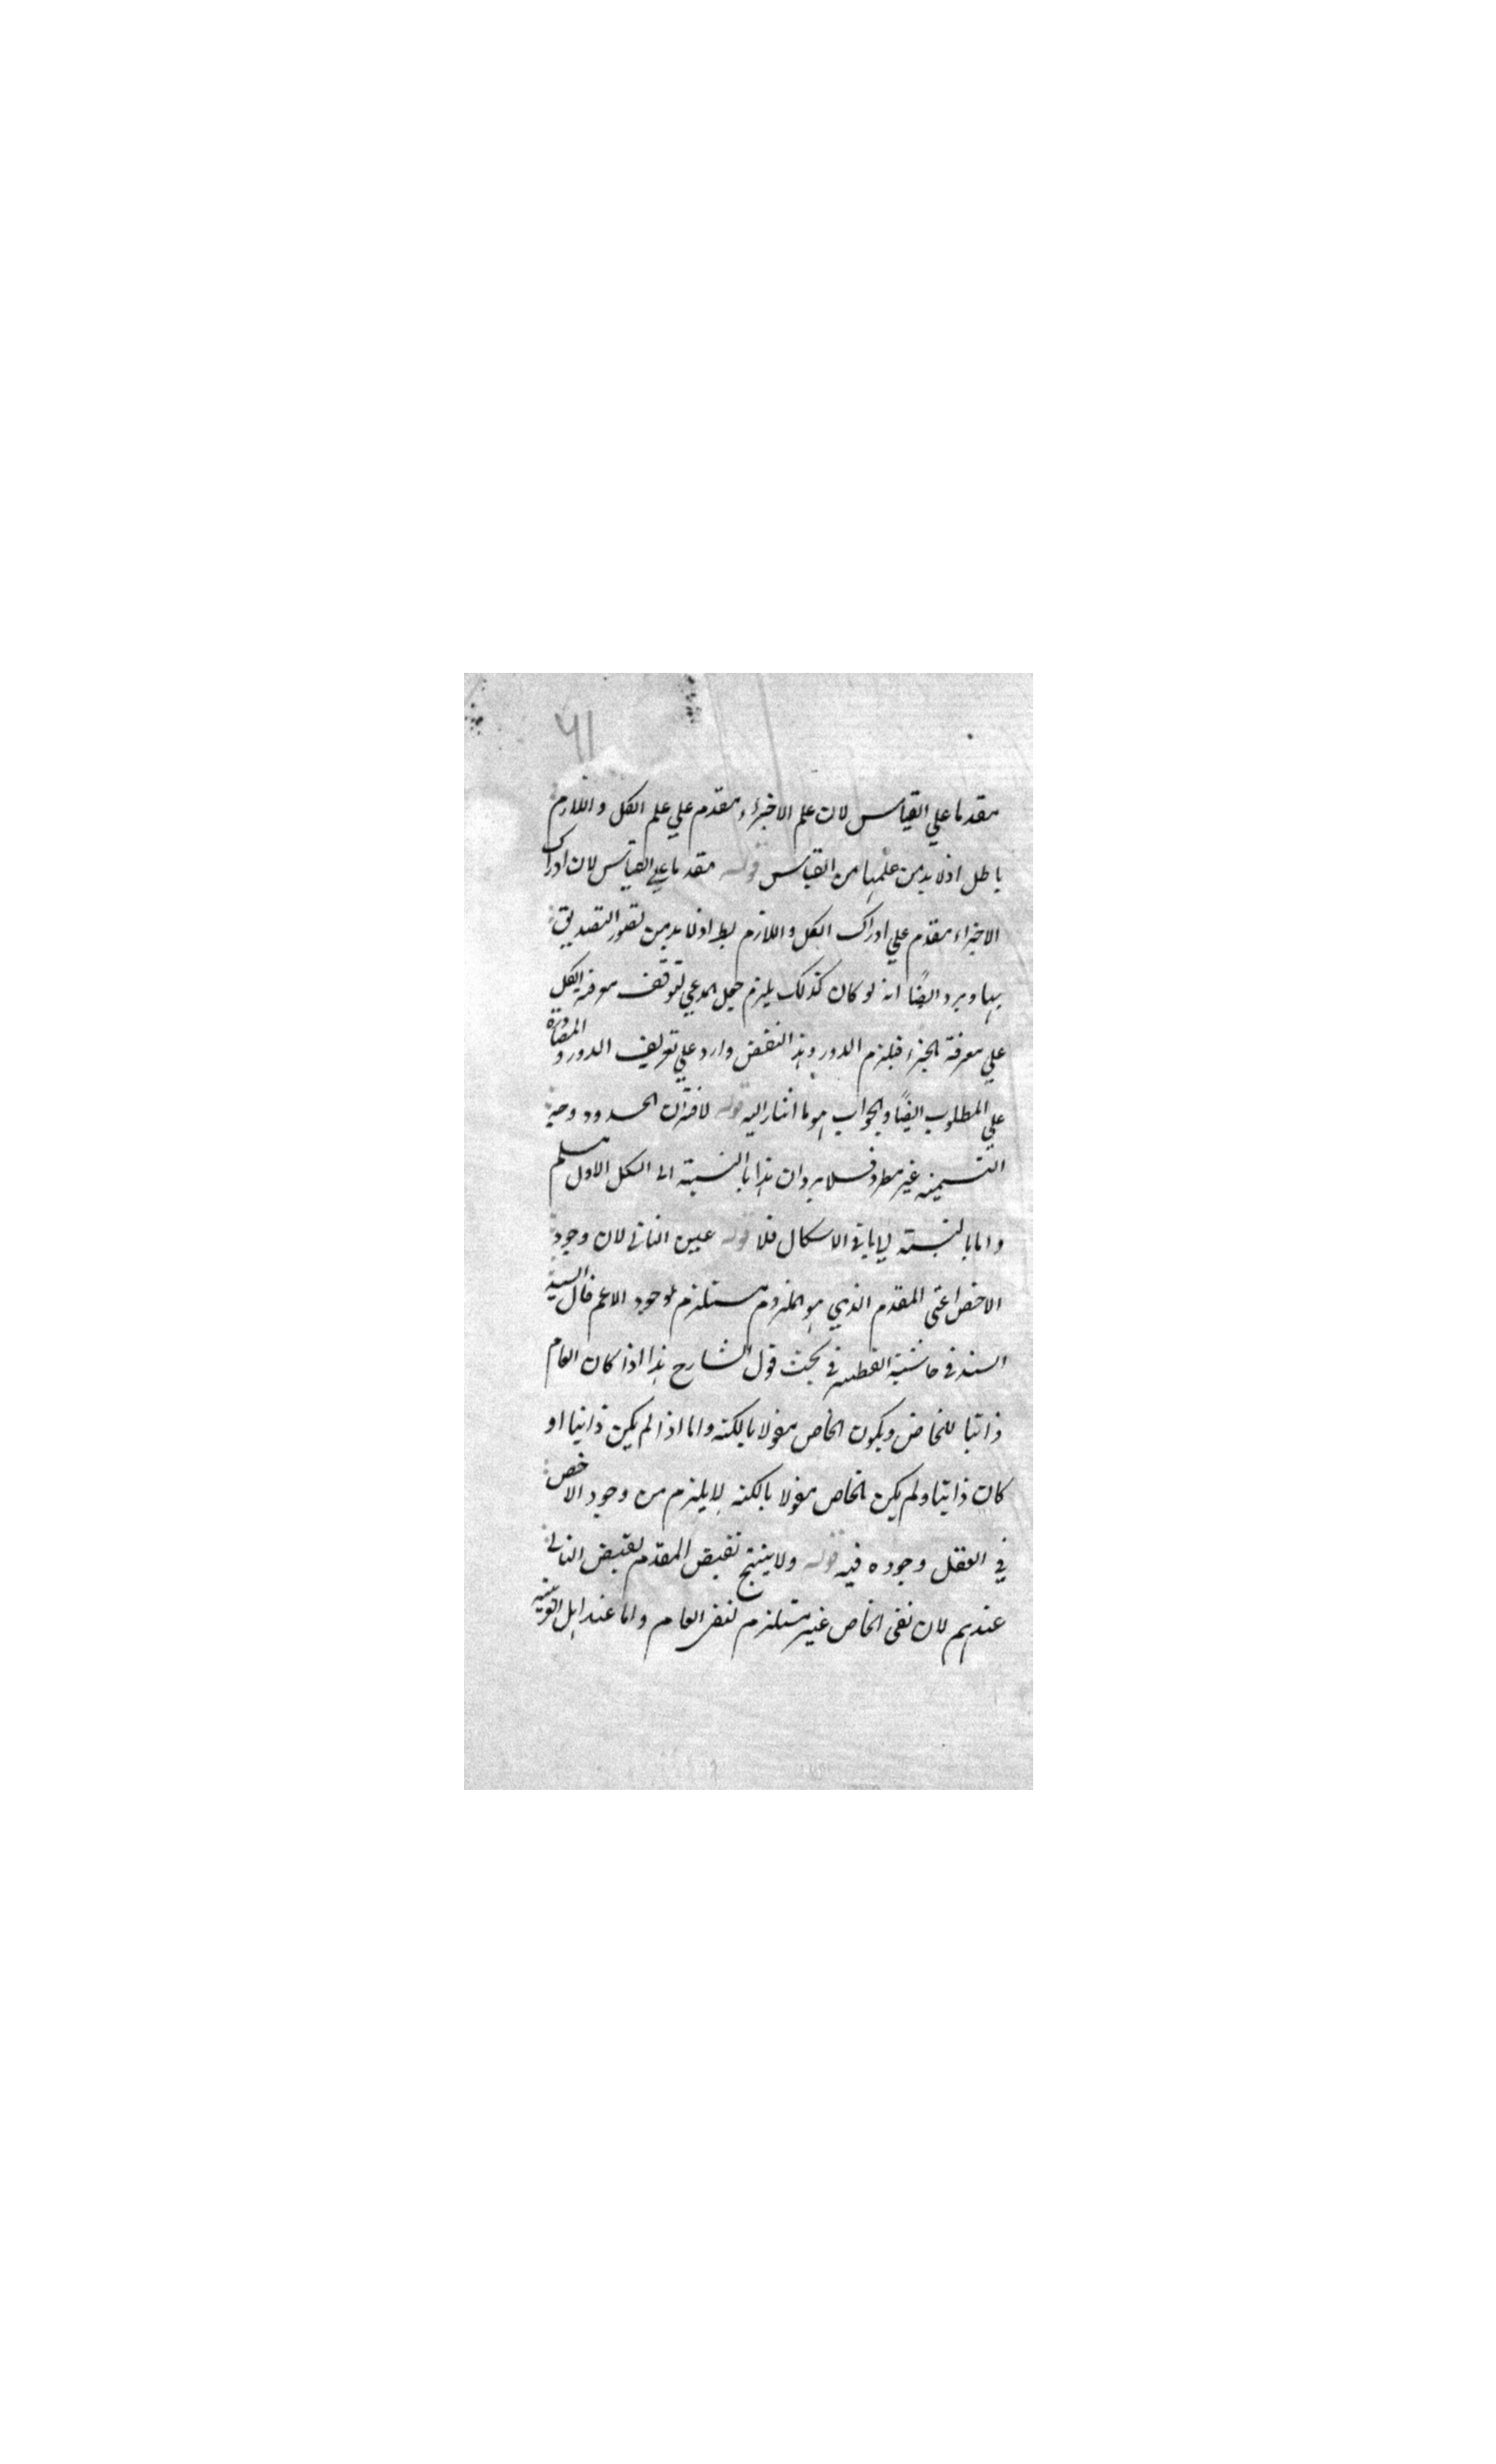 ٦١
مقدما علي القياس لان علم الاجزاء مقدم علي علم الكل واللازم
باطل اذ لا بد من علمها من القياس قوله مقدما علي القياس لان ادراك
الاجزاء مقدم علي ادراك الكل واللازم بط اذ لا بد من تصور التصديق
بها ويرد ايضًا انه لو كان كذلك يلزم جهل المدعي لتوقف معرفة الكل
علي معرفة الجزء فيلزم الدور وهذا النقض وارد علي تعريف الدور والمصادرة
علي المطلوب ايضًا والجواب هو ما اشار اليه قوله لاقتران الحدود وجه
التسمية غير مطرد فلا يرد ان هذا بالنسبة الى الشكل الاول مسلم
واما بالنسبة لباقي الاشكال فلا قوله عين التالى لان وجود
الاخص اعنى المقدم الذي هو الملزوم مستلزم لوجود الاعم قال السيد
السند في حاشية القطبيه في بحث قول الشارح هذا اذا كان العام
ذاتيا للخاص ويكون الخاص معقولا بالكنه واما اذا لم يكن ذاتيا او
كان ذاتيا ولم يكن الخاص معقولا بالكنه لا يلزم من وجود الاخص
في العقل وجوده فيه قوله ولا ينتج نقيض المقدم نقيض التالى
عندهم لان نفى الخاص غير مستلزم لنفى العام واما عند اهل العربيه